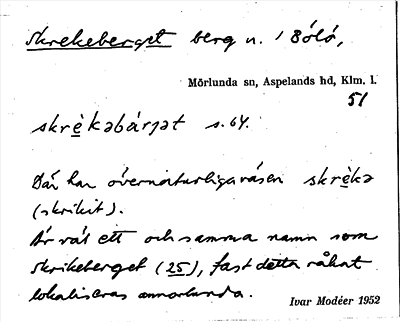 Skrekeberget berg n. i Bölö,
Mörlunda sn, Aspelands hd, Klm. l.
51
skrèkəbárjət s. 64.
Där har övernaturliga väsen skrèkə
(skrikit).
Är väl ett och samma namn som
Skrikeberget (25), fast detta råkat
lokaliseras annorlunda.
Ivar Modéer 1952